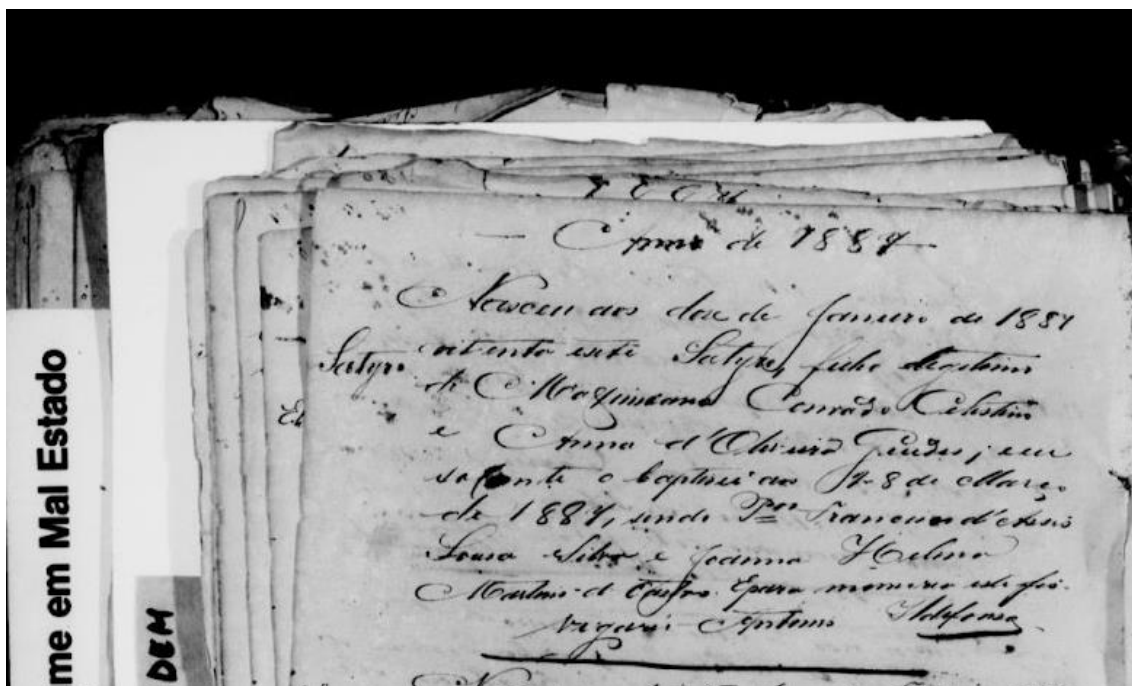 Anno de 1887
Nasceu aos doze de Janeiro de 1887
Satyro
oitenta esete Satyro, filho legitimo
de Maximiano Conrado Celestino
e Anna d'Oliveira Guedes; eu
solemnte o baptisei aos de Março
de 1887, sendo Pes Francisco d'Assis
Sousa Silva e Joanna Helena
Martins d Castro. Epara memoria este fis.
Vigario Antonio Ildefonso
me em Mal Estado
DEM